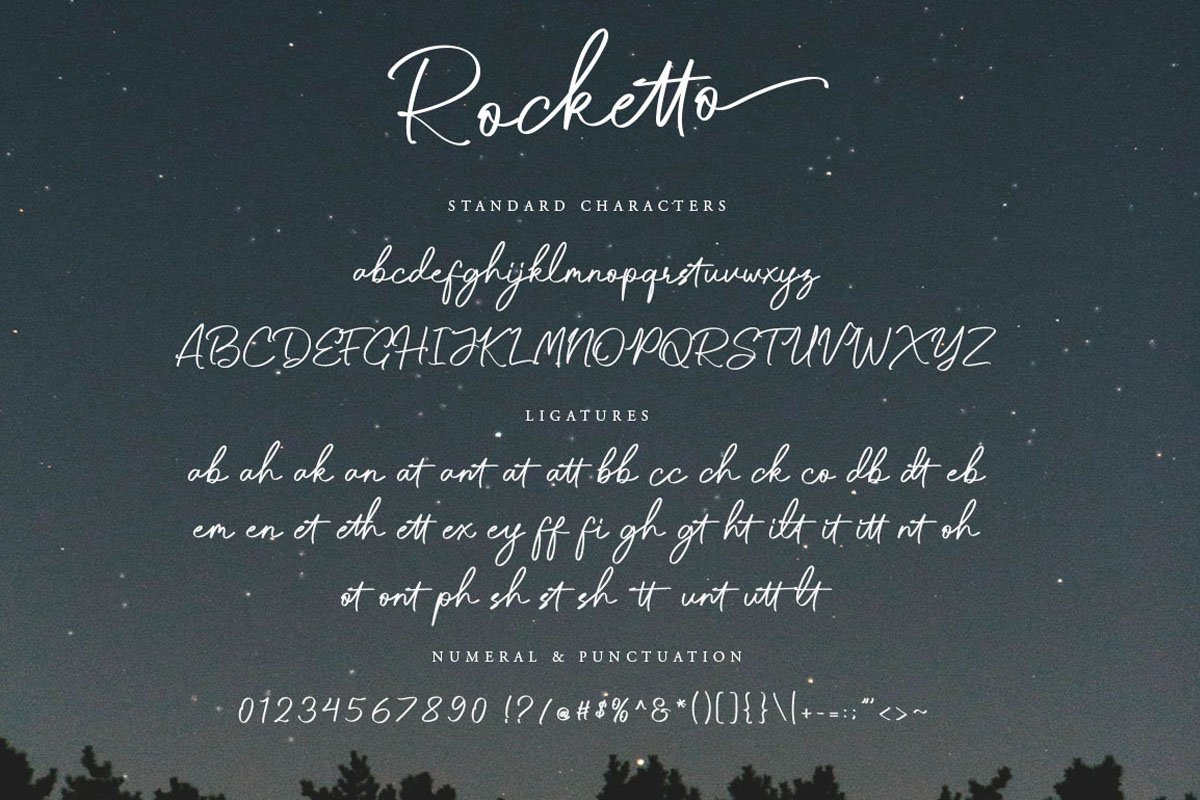 Rocketto
STANDARD CHARACTERS
abcdefghijklmnopqrstuvwxyz
ABCDEFGHIJKLMNOPQRSTUVWXYZ
LIGATURES
ab ah ak an at ant at att bb cc ch ck co db dt eb
em en et eth ett ex ey ff fi gh gt ht ilt it itt nt oh
ot ont ph sh st sh tt unt utt lt
NUMERAL & PUNCTUATION
01234567890 !?/@#$%^&*()[]{}\|+-=:;"'<>~